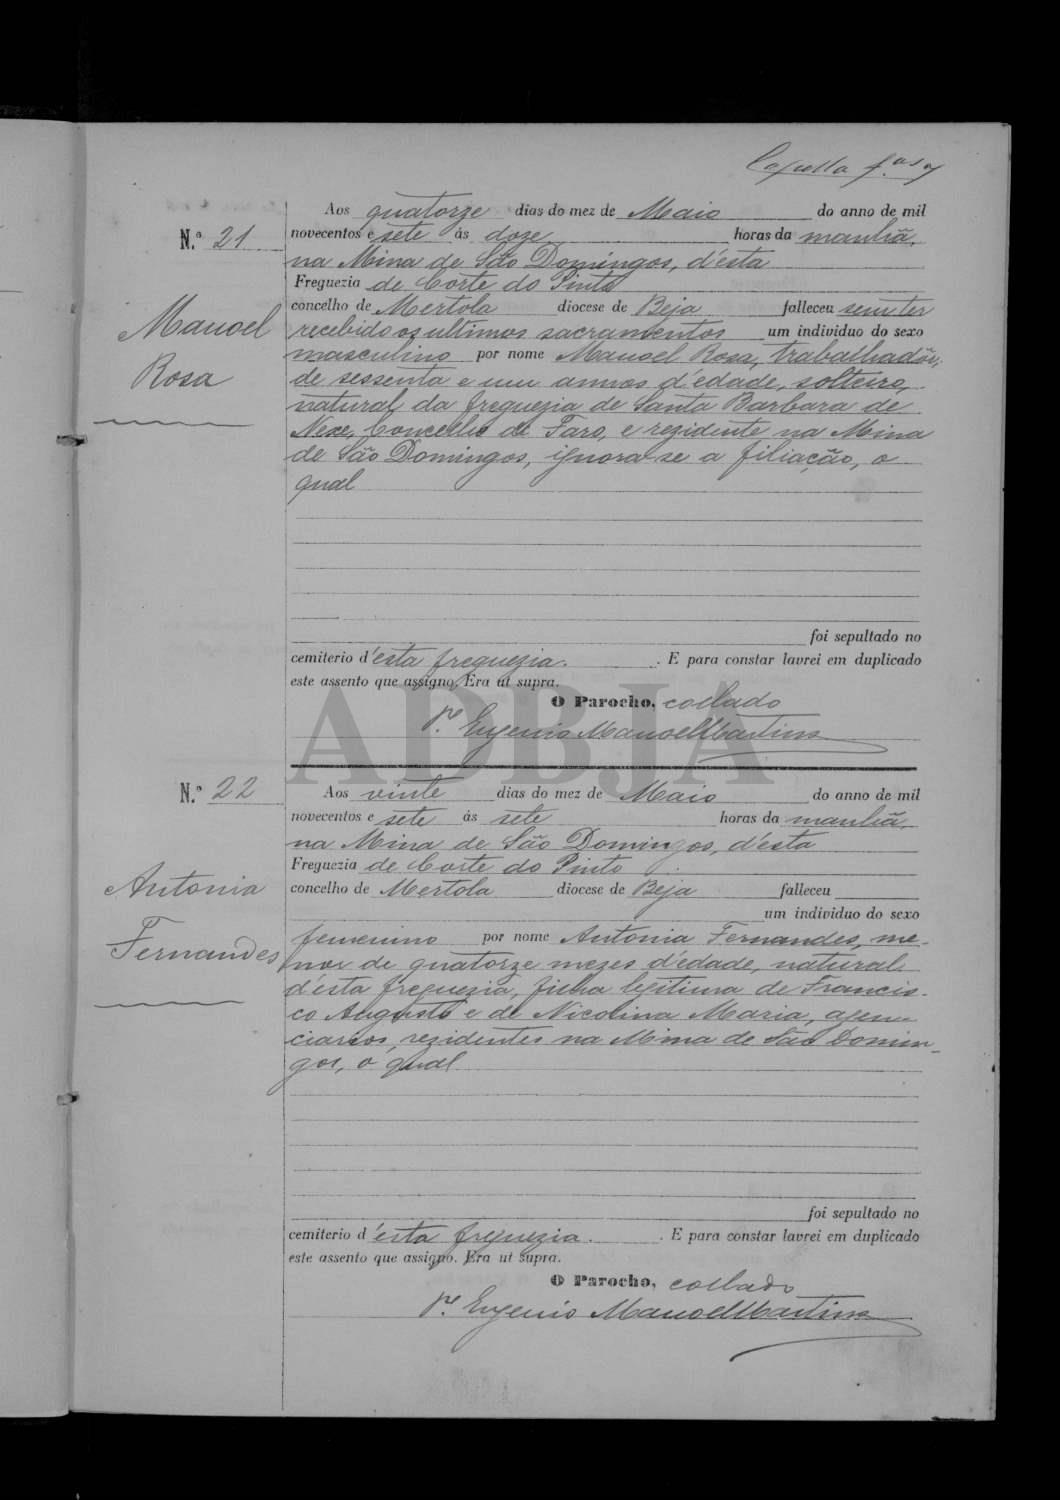 Capella
Aos quatorze dias do mez de Maio do anno de mil
N.º 21
novecentos e sete ás doze horas da manhã,
na Mina de São Domingos, d'esta
Freguezia de Corte do Pinto
concelho de Mertola diocese de Beja falleceu sem ter
recebido os ultimos sacramentos um individuo do sexo
masculino por nome Manoel Rosa, trabalhadôr,
de sessenta e um annos d'edade, solteiro,
natural da freguezia de Santa Barbara de
Nexe, Concelho de Faro, e rezidente na Mina
de São Domingos, ignora-se a filiação, o
qual
Manoel
Rosa
foi sepultado no
cemiterio d'esta freguezia. E para constar lavrei em duplicado
este assento que assigno. Era ut supra.
O Parocho, collado
P.e Eugenio Manoel Martins
ADBJA
N.º 22
Aos vinte dias do mez de Maio do anno de mil
novecentos e sete ás sete horas da manhã,
na Mina de São Domingos, d'esta
Freguezia de Corte do Pinto
concelho de Mertola diocese de Beja falleceu
um individuo do sexo
femenino por nome Antonia Fernandes, me-
nor de quatorze mezes d'edade, natural
d'esta freguezia, filha legitima de Francis-
co Augusto e de Nicolina Maria, agen-
ciarios, rezidentes na Mina de São Domin-
gos, o qual
Antonia
Fernandes
foi sepultado no
cemiterio d'esta freguezia. E para constar lavrei em duplicado
este assento que assigno. Era ut supra.
O Parocho, collado
P.e Eugenio Manoel Martins